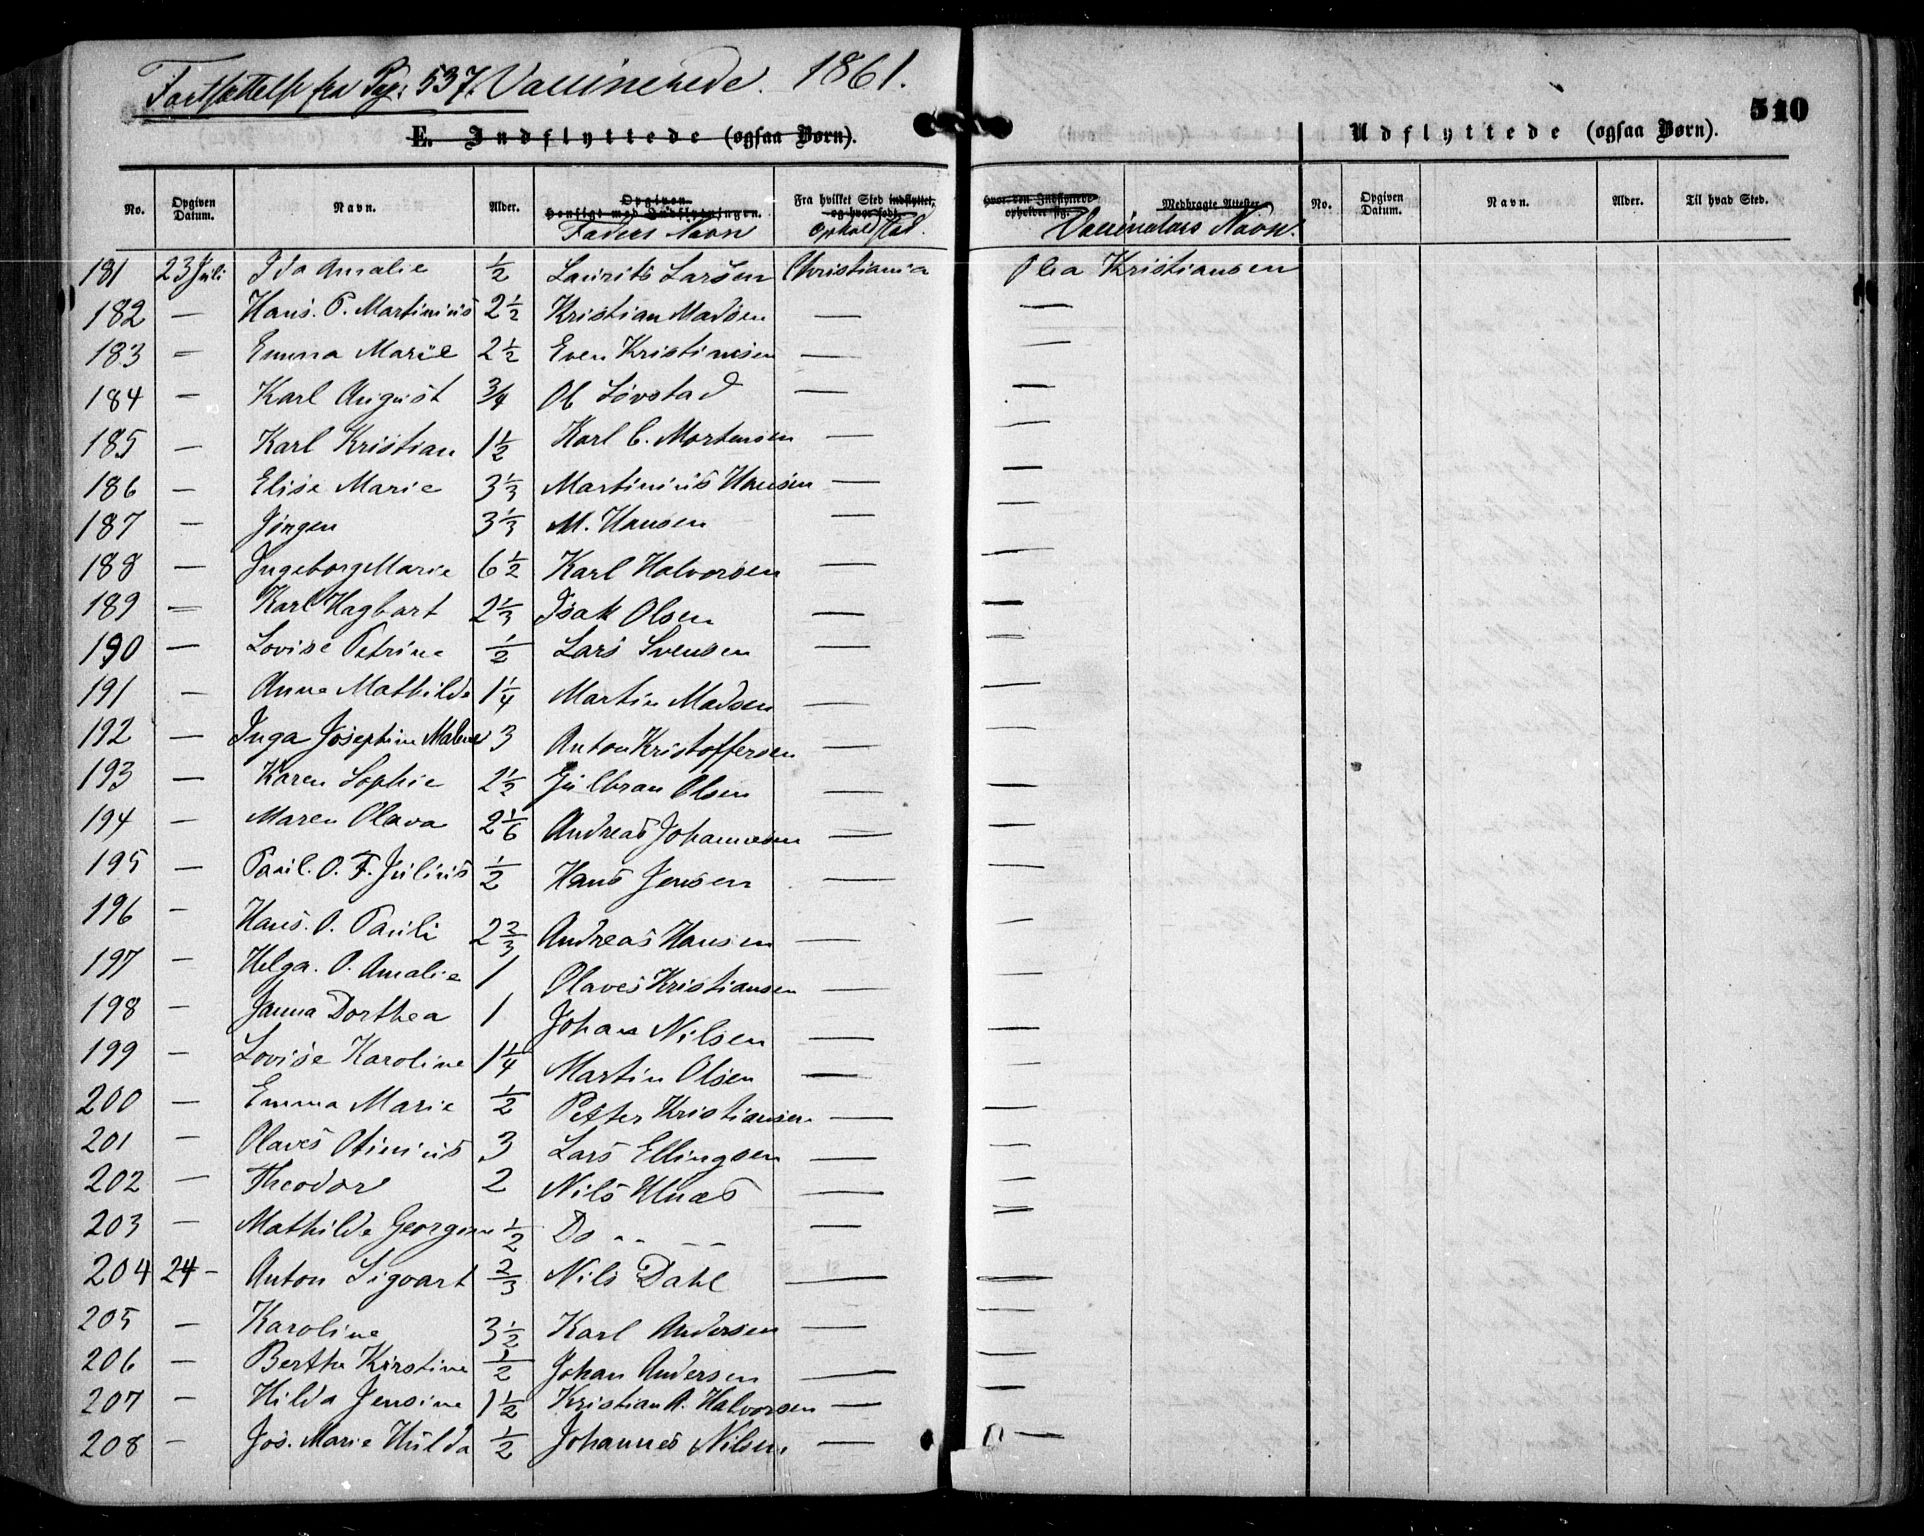 Fortsættelse fra Pag: 537. Vaccinerede. 1861.
510
E. Indflyttede (ogsaa Børn).
Udflyttede (ogsaa Børn).
No. Opgiven Datum. Navn. Alder. Opgiven Hensigt med Indflytningen. Faders Navn Fra hvilket Sted indflyttet, og hvor født. Opholdsted. Hvor den Indflyttede opholder sig. Medbragte Attester. Vaccinatørs Navn. No. Opgiven Datum. Navn. Alder. Til hvad Sted.
181 23 Juli Ida Amalie 1/2 Laurits Larsen Christiania Olea Kristiansen
182 — Hans. P. Martinius 2 1/2 Kristian Madsen — —
183 — Emma Marie 2 1/2 Even Kristiansen — —
184 — Karl August 3/4 Ol Løvstad — —
185 — Karl Kristian 1 1/2 Karl C. Mortensen — —
186 — Elise Marie 3 1/3 Martinius Hansen — —
187 — Jørgen 3 1/3 M. Hansen — —
188 — Ingeborg Marie 6 1/2 Karl Halvorsen — —
189 — Karl Hagbart 2 1/3 Isak Olsen — —
190 — Lovise Petrine 1/2 Lars Svensen — —
191 — Anna Mathilde 1 1/4 Martin Madsen — —
192 — Inga Josephine Malene 3 Anton Kristoffersen — —
193 — Karen Sophie 2 1/2 Julbran Olsen — —
194 — Maren Olava 2 1/6 Andreas Johannesen — —
195 — Paul. O. F. Julius 1/2 Hans Jensen — —
196 — Hans. O. Pauli 2 2/3 Andreas Hansen — —
197 — Helga. O. Amalie 1 Olaves Kristiansen — —
198 — Janna Dorthea 1 Johan Nilsen — —
199 — Lovise Karoline 1 1/4 Martin Olsen — —
200 — Emma Marie 1/2 Petter Kristiansen — —
201 — Olaves Otinius 3 Lars Ellingsen — —
202 — Theodor 2 Nils Ulnæs — —
203 — Mathilde Georgine 1/2 Do — —
204 24 — Anton Sigvart 2/3 Nils Dahl — —
205 — Karoline 3 1/2 Karl Andersen — —
206 — Berthe Kirstine 1/2 Johan Andersen — —
207 — Hilda Jensine 1 1/2 Kristian A. Halvorsen — —
208 — Jos. Marie Hulda 1/2 Johannes Nilsen — —